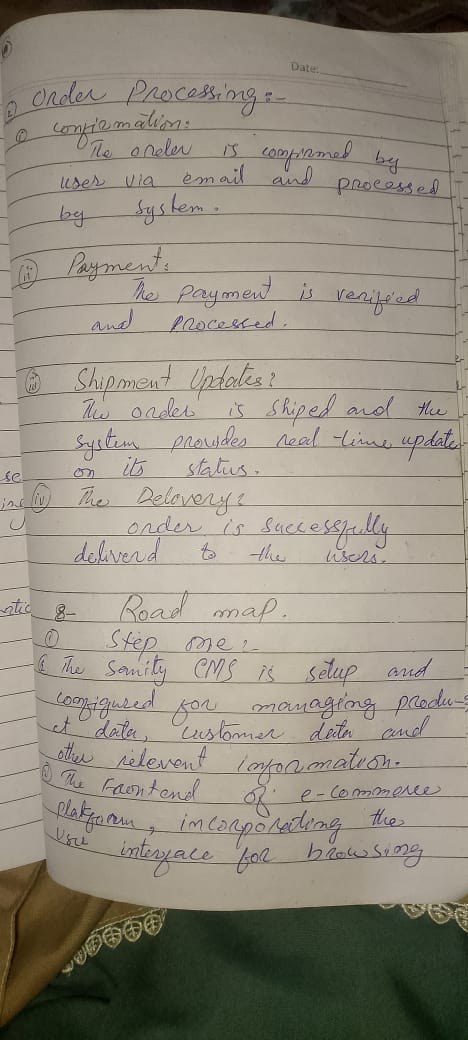 Date:
② Order Processing:-
① confirmation:
The order is confirmed by
user via email and processed
by system.
(ii) Payment:
The payment is verified
and processed.
(iii) Shipment Updates:
The order is shiped and the
system provides real-time update
on its status.
(iv) The Delovery:
order is successfully
deliverd to the users.
8- Road map.
① Step one:-
① The Sanity CMS is setup and
configured for managing produ-
ct data, customer data and
other relevent information.
② The Frontend of e-commerce
platform, incorporating the
user interface for browsing
se
ing
atic